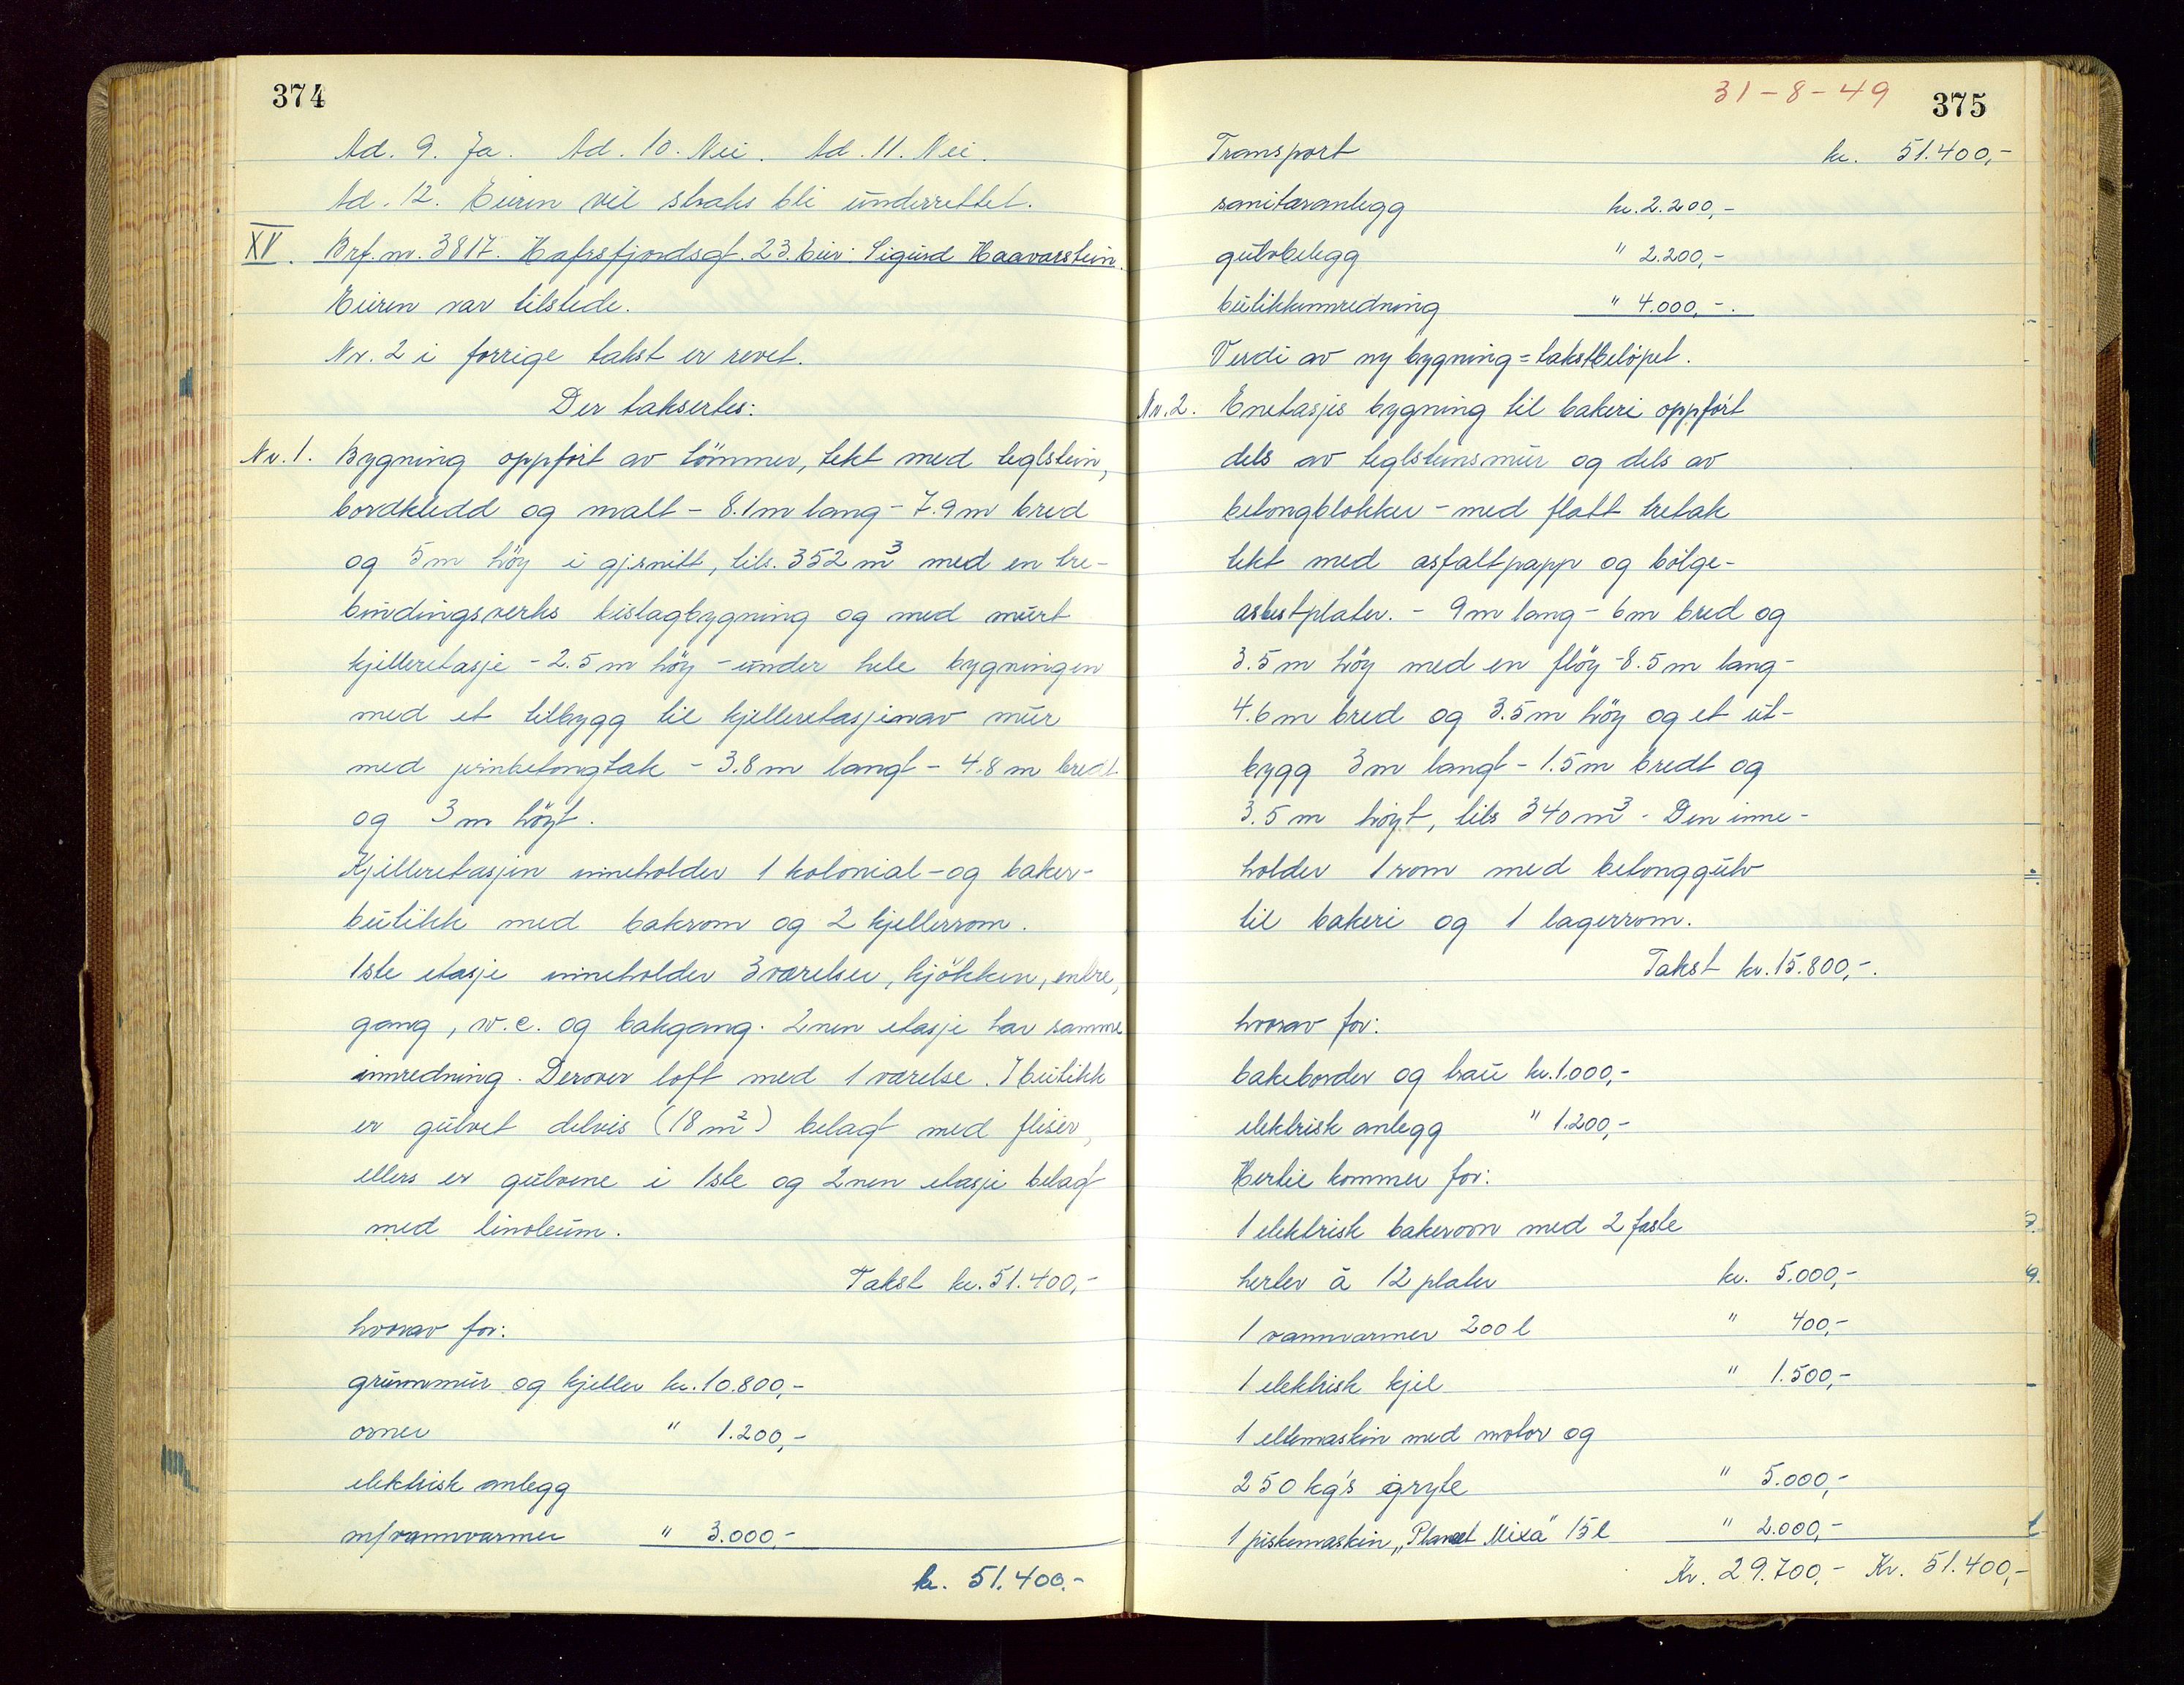 374
Ad. 9. Ja. Ad. 10. Nei. Ad. 11. Nei.
Ad. 12. Eieren vil straks bli underrettet.
XV. Brf. nr. 3817. Hafrsfjordsgt. 23. Eier: Sigurd Haavarstein.
Eieren var tilstede.
Nr. 2 i forrige takst er revet.
Der takseres:
Nr. 1. Bygning oppført av tömmer, tekt med teglstein,
bordkledd og malt - 8.1m lang - 7.9m bred
og 5m höy i gj.snitt, tils. 352 m³ med en tre-
bindingsverks bislagbygning og med murt
kjelleretasje - 2.5m höy - under hele bygningen
med et tilbygg til kjelleretasjen av mur
med jernbetongtak - 3.8m langt - 4.8m bredt
og 3m höyt.
Kjelleretasjen inneholder 1 kolonial- og baker-
butikk med bakrom og 2 kjellerrom.
1ste etasje inneholder 3 værelser, kjökken, entre,
gang, w.c. og bakgang. 2nen etasje har samme
innredning. Derover loft med 1 værelse. I butikk
er gulvet delvis (18 m²) belagt med fliser,
ellers er gulvene i 1ste og 2nen etasje belagt
med linoleum.
Takst kr. 51.400,-
hvorav for:
grunnmur og kjeller kr. 10.800,-
ovner " 1.200,-
elektrisk anlegg
m/vannvarmer " 3.000,-
kr. 51.400.-
31-8-49
375
Transport kr. 51.400,-
sanitæranlegg kr. 2.200,-
gulvbelegg " 2.200,-
butikkinnredning " 4.000,-.
Verdi av ny bygning = takstbelöpet.
Nr. 2. Enetasjes bygning til bakeri oppfört
dels av teglsteinsmur og dels av
betongblokker - med flatt tretak
tekt med asfaltpapp og bölge-
asbestplater. - 9m lang - 6m bred og
3.5m höy med en flöy - 8.5m lang -
4.6m bred og 3.5m höy og et ut-
bygg 3m langt - 1.5m bredt og
3.5m höyt, tils 340 m³. Den inne-
holder 1 rom med betonggulv
til bakeri og 1 lagerrom.
Takst kr. 15.800,-.
hvorav for:
bakeborder og trau kr. 1.000,-
elektrisk anlegg " 1.200,-
Hertil kommer for:
1 elektrisk bakerovn med 2 faste
herter à 12 plater kr. 5.000,-
1 vannvarmer 200 l " 400,-
1 elektrisk kjel " 1.500,-
1 eltemaskin med motor og
250 kg's gryte " 5.000,-
1 piskemaskin „Planet Mixa" 15 l " 2.000,-
Kr. 29.700,- Kr. 51.400,-